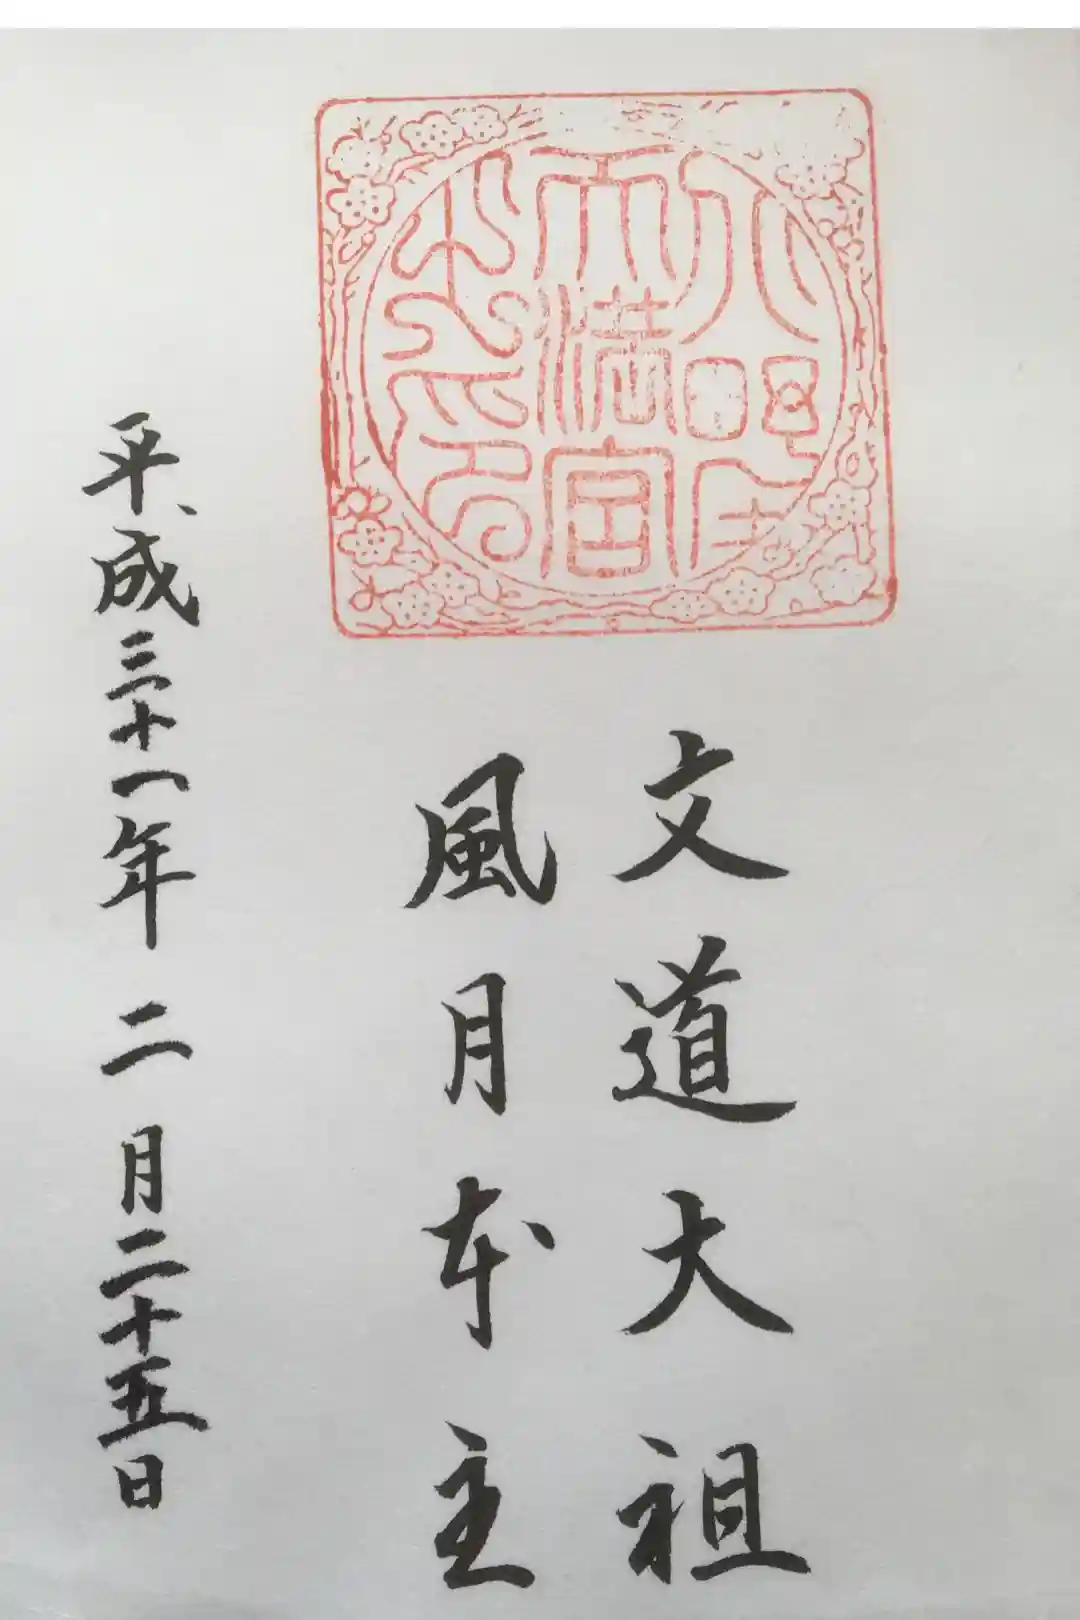 天満宮
之印
文道大祖
風月本主
平成三十一年二月二十五日